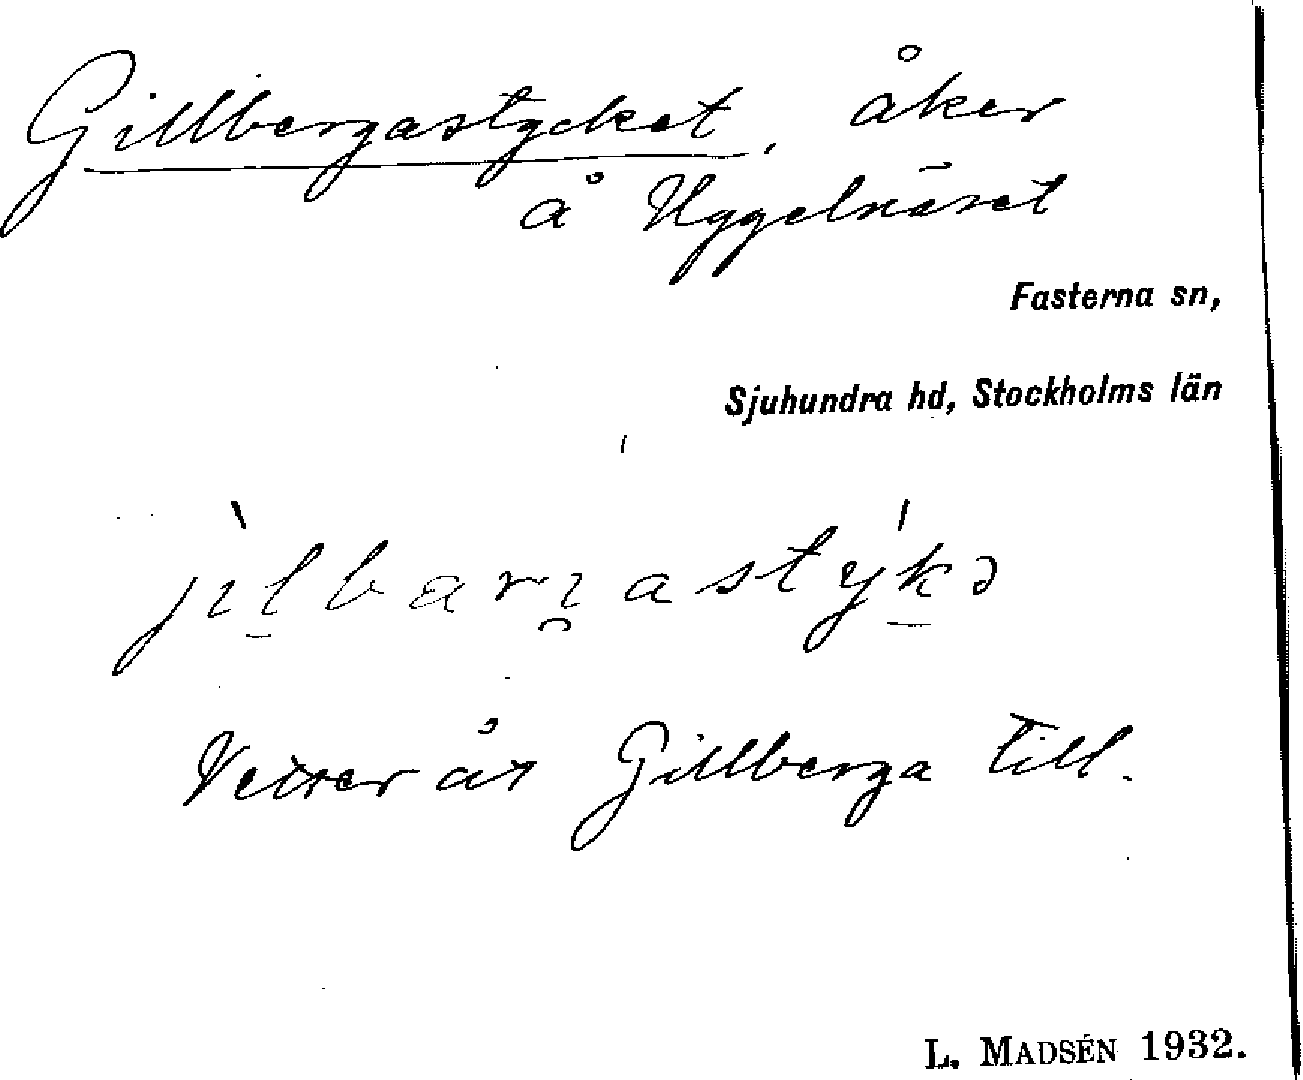 Gillbergastycket, åker
å Uggelnäset
Fasterna sn,
Sjuhundra hd, Stockholms län
jìlbari̯astýkə
Vetter åt Gillberga till.
L. MADSÉN 1932.